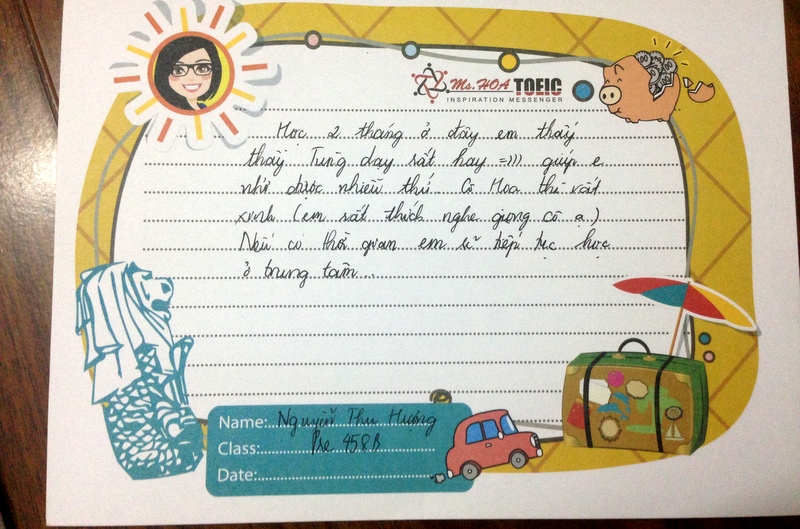 Ms. HOA TOEIC
INSPIRATION MESSENGER
Học 2 tháng ở đây em thấy
thầy Tùng dạy rất hay =))) giúp e
nhớ được nhiều thứ. Cô Hoa thì rất
xinh (em rất thích nghe giọng cô ạ)
Nếu có thời gian em sẽ tiếp tục học
ở trung tâm...
Name: Nguyễn Thu Hường
Class: Pre 458B
Date: